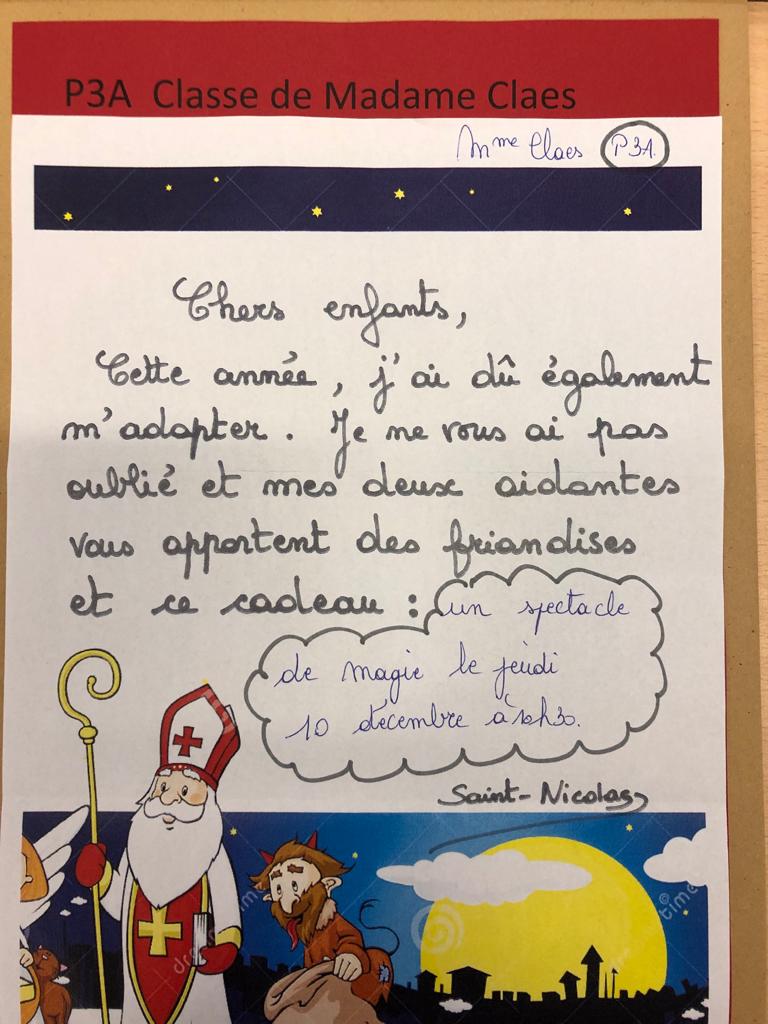 P3A Classe de Madame Claes
Mme Claes P3A.
Chers enfants,
Cette année, j'ai dû également
m'adapter. Je ne vous ai pas
oublié et mes deux aidantes
vous apportent des friandises
et ce cadeau : un spectacle
de magie le jeudi
10 décembre à 10h30.
Saint-Nicolas
©